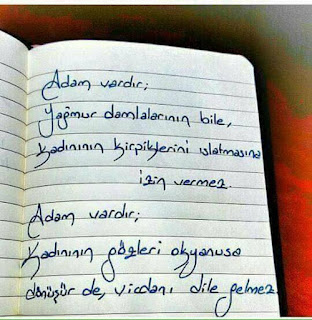 Adam vardır;
Yağmur damlalarının bile,
Kadınının kirpiklerini ıslatmasına
izin vermez.
Adam vardır;
Kadınının gözleri okyanusa
dönüşür de, vicdanı dile gelmez